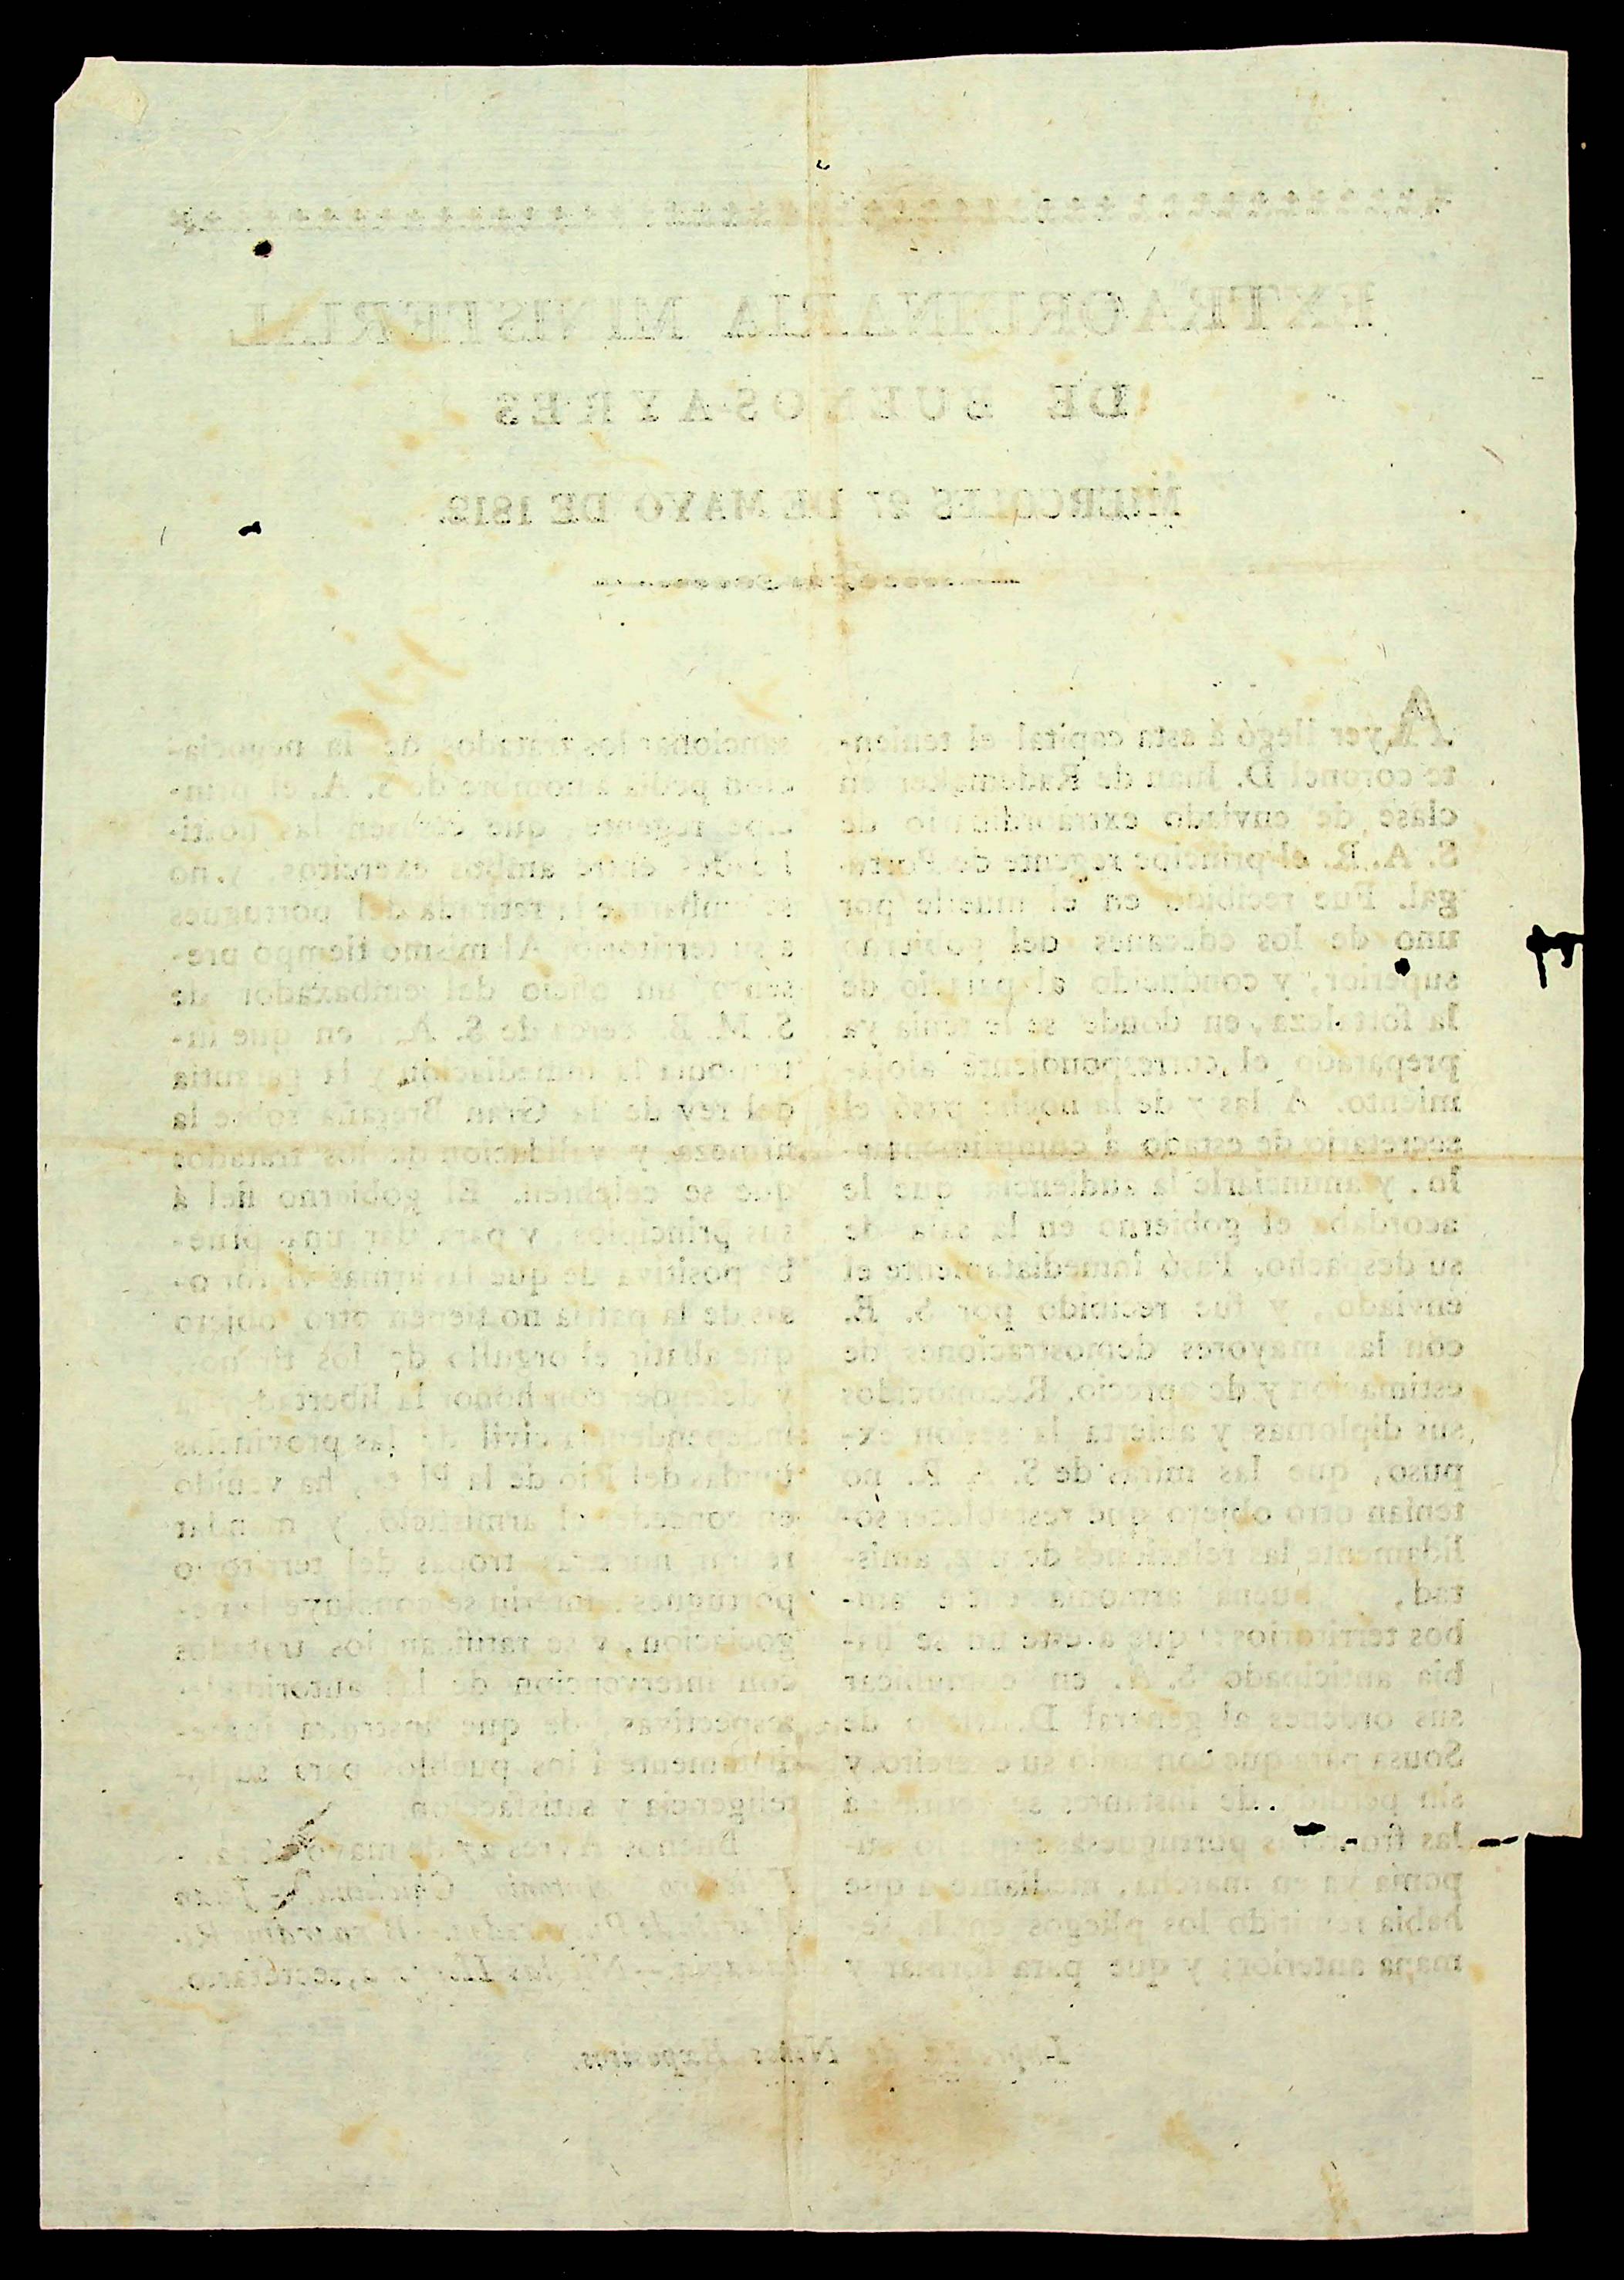 EXTRAORDINARIA MINISTERIAL
DE BUENOS-AYRES
MIERCOLES 27 DE MAYO DE 1812.
Ayer llegó á esta capital el tenien-
te coronel D. Juan de Rademaker en
clase de enviado extraordinario de
S. A. R. el principe regente de Portu-
gal. Fue recibido en el muelle por
uno de los edecanes del gobierno
superior, y conducido al palacio de
la fortaleza, en donde se le tenia ya
preparado el correspondiente aloja-
miento. A las 7 de la noche pasó el
secretario de estado á cumplimentar-
lo, y anunciarle la audiencia que le
acordaba el gobierno en la sala de
su despacho. Pasó inmediatamente el
enviado, y fue recibido por S. E.
con las mayores demostraciones de
estimacion y de aprecio. Reconocidos
sus diplomas y abierta la sesion ex-
puso, que las miras de S. A. R. no
tenian otro objeto que restablecer só-
lidamente las relaciones de paz, amis-
tad, buena armonía entre am-
bos territorios: que a este fin se ha-
bia anticipado S. A. en comunicar
sus ordenes al general D. de
Sousa para que con todo su exercito, y
sin perdida de instantes se retirase á
las fronteras portuguesas
ponia ya en marcha, mediante á que
habia remitido los pliegos en la se-
mana anterior; y que para formar y
sancionar los tratados de la negocia-
cion pedia a nombre de S. A. el prin-
cipe regente, que cesasen las hosti-
lidades entre ambos exercitos, y no
se la retirada del portugues
a su territorio. Al mismo tiempo pre-
sentó un oficio del embaxador de
S. M. B. cerca de S. A., en que in-
terponia la mediacion y la garantia
del rey de la Gran Bretaña sobre la
firmeza y validacion de los tratados
que se celebren. El gobierno fiel á
sus principios, y para dar una prue-
ba positiva de que las armas victorio-
sas de la patria no tienen otro objeto
que abatir el orgullo de los tiranos,
y defender con honor la libertad y la
independencia civil de las provincias
unidas del Rio de la Plata, ha venido
en conceder el armisticio, y mandar
retirar nuestras tropas del territorio
portugues, interin se concluye la ne-
gociacion, y se ratifican los tratados
con intervencion de las autoridades
respectivas, de que instruirá inme-
diatamente á los pueblos para su in-
teligencia y satisfaccion.
Buenos Ayres 27 de mayo de 1812. -
Feliciano Antonio Chiclana. - Juan
Martin de Pueyrredon. - Bernardino Ri-
vadavia. - Nicolas Herrera, secretario.
Imprenta de Niños Expósitos.